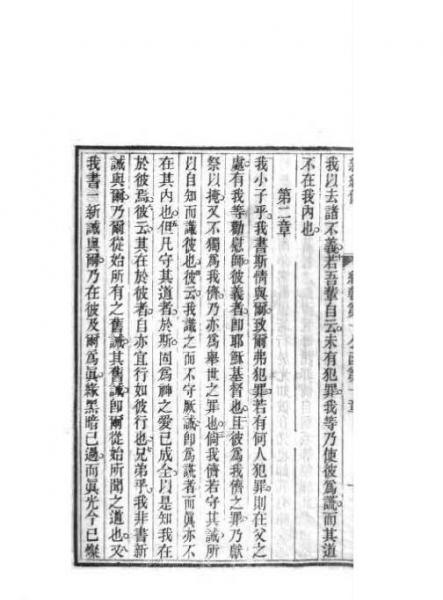 我以去諸不義若吾輩自云未有犯罪我等乃使彼為謊而其道
不在我內也
第二章
我小子乎我書斯情與爾致爾弗犯罪若有何人犯罪則在父之
處有我等勸慰師彼義者即耶穌基督也且彼為我儕之罪乃獻
祭以掩又不獨為我儕乃亦為舉世之罪也倘我儕若守其誡所
以自知而識彼也彼云我識之而不守厥誡即為謊者而真亦不
在其內也但凡守其道者於斯固為神之愛已成全以是知我在
於彼焉彼云其在於彼者自亦宜行如彼行也兄弟乎我非書新
誡與爾乃爾從始所有之舊誡其舊誡即爾從始所聞之道也又
我書一新誡與爾乃在彼及爾為真緣黑暗已過而真光今已燦